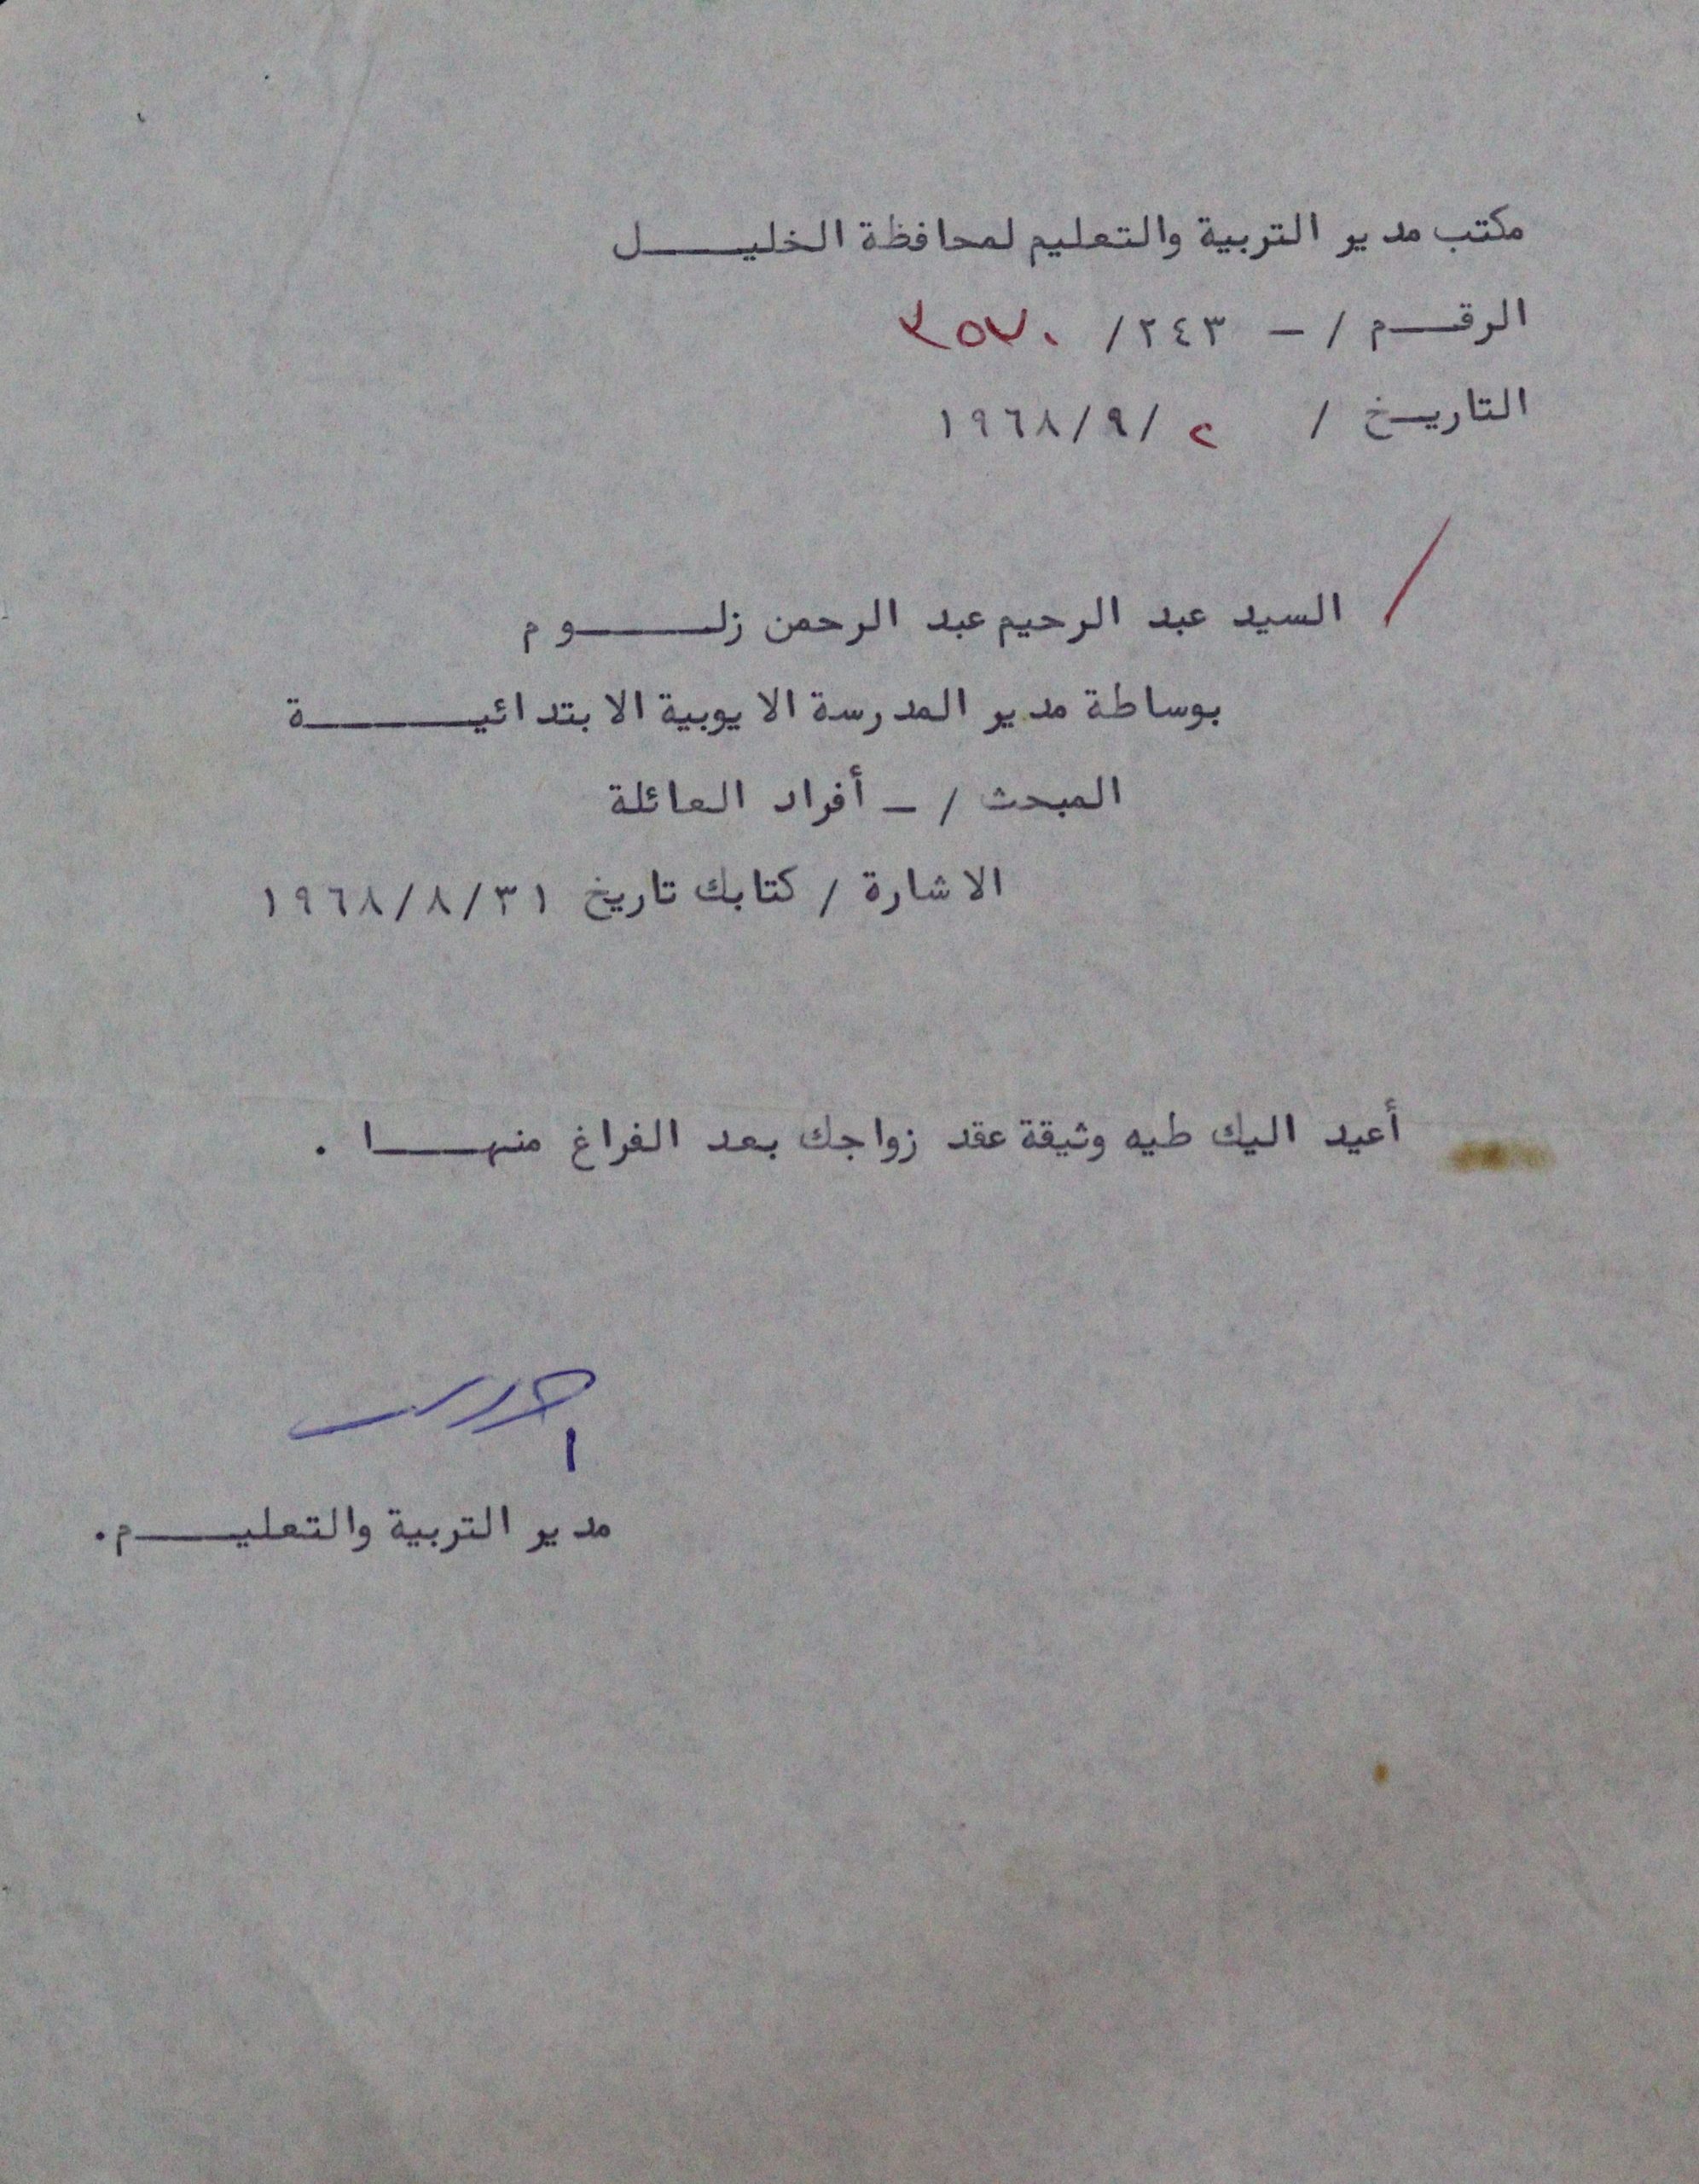 مكتب مدير التربية والتعليم لمحافظة الخليل
الرقم /- ٢٤٣/ ٣٥٧٠
التاريخ / ٢/٩/١٩٦٨
/ السيد عبد الرحيم عبد الرحمن زلوم
بوساطة مدير المدرسة الايوبية الابتدائية
المبحث /- أفراد العائلة
الاشارة / كتابك تاريخ ٣١/٨/١٩٦٨
أعيد اليك طيه وثيقة عقد زواجك بعد الفراغ منها .
مدير التربية والتعليم.